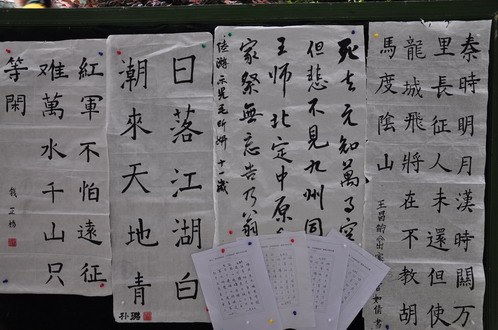 秦時明月漢時關万
里長征人未還但使
龍城飛將在不教胡
馬度陰山
王昌齡出塞
死去元知萬事空
但悲不見九州同
王師北定中原
家祭無忘告乃翁
陸游示兒 十一歲
日落江湖白
潮來天地青
孙璐
紅軍不怕遠征
难萬水千山只
等閑